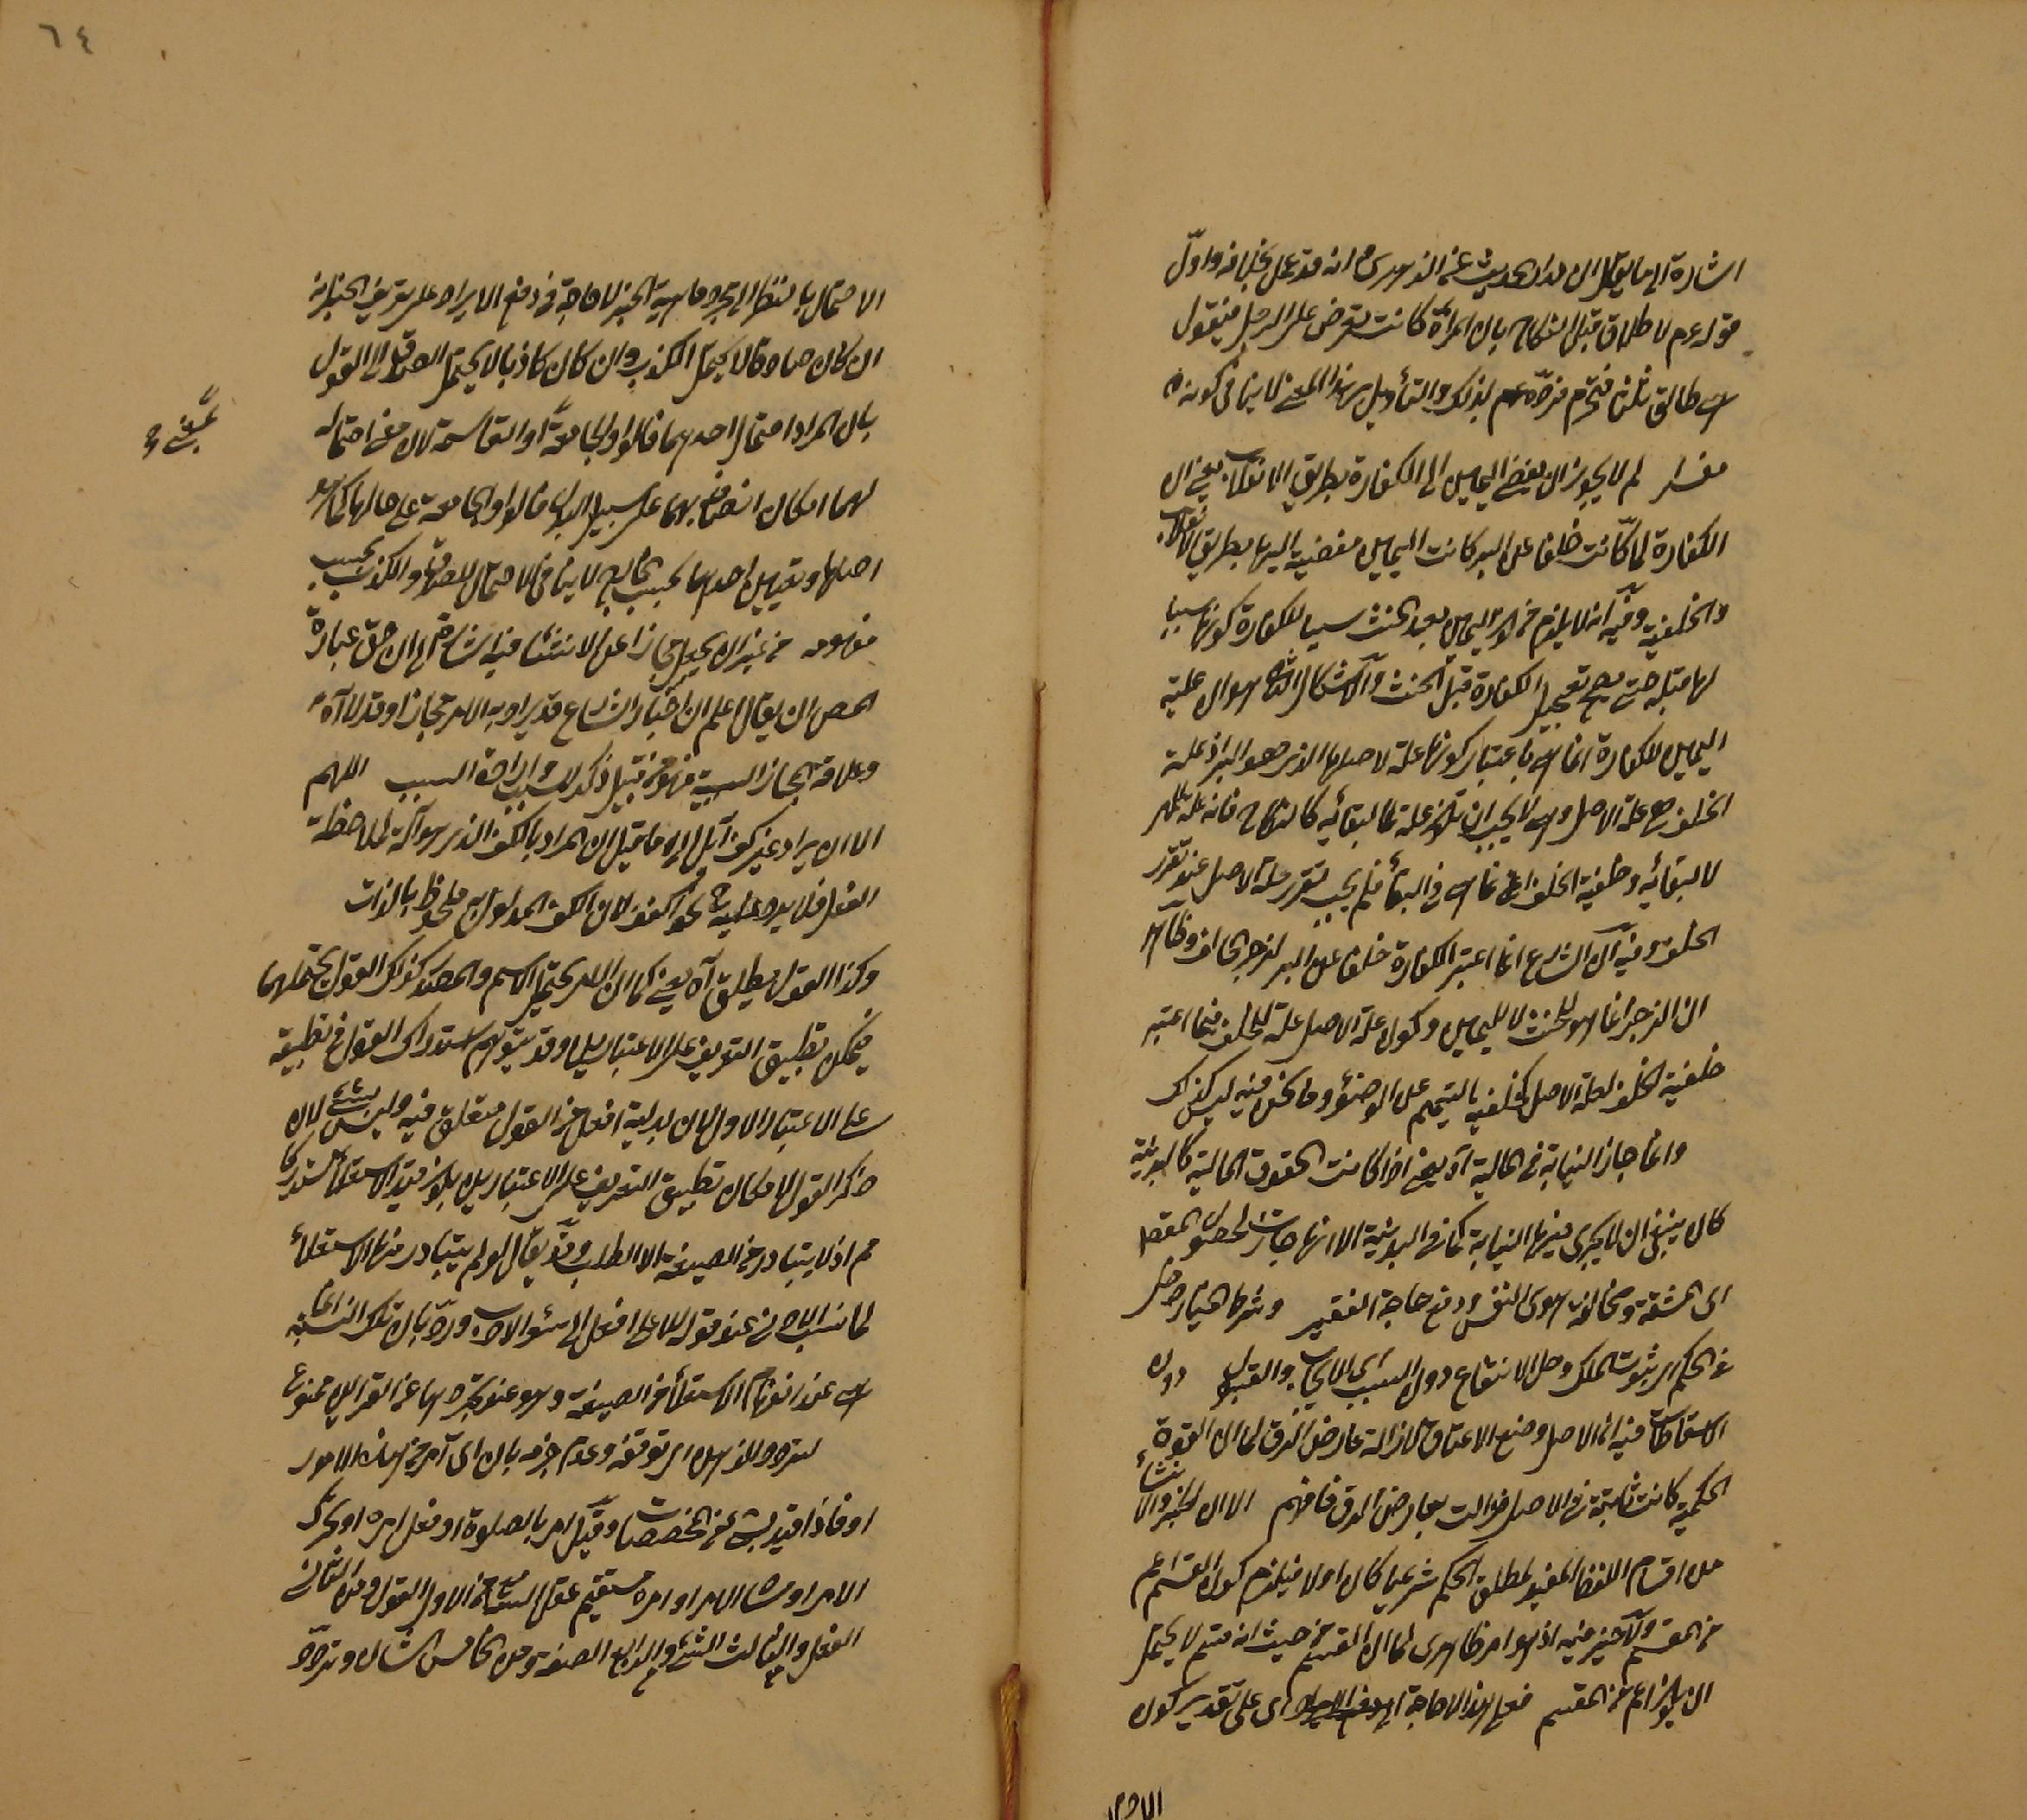 اشارة الى ما يقال ان هذا الحديث عن الزهرى انه قد عمل بخلافه واوّل
قوله عم لا طلاق قبل النكاح بان المرأة كانت تعرض على الرجل فيقول
هى طالق ثلثا فتحرم فردّه عم بذلك والتأويل بهذا المعنى لا ينافى كونه
مفسرا لم لا يجوز ان يفضى اليمين الى الكفارة بطريق الانقلاب يعنى ان
الكفارة لما كانت خلفا عن البر كانت اليمين مفضية اليها بطريق الانقلاب
والخلفية وفيه انه لا يلزم من كون اليمين بعد الحنث سببا للكفارة كونها سببا
لها قبله حتى يصح تعجيل الكفارة قبل الحنث والاشكال الثانى هو ان علية
اليمين للكفارة انما هى باعتبار كونها علة لاصلها الذى هو البر اذ علة
الخلف هى علة الاصل وهى لا يجب ان تكون علة لها لبقائه كالنكاح فانه علة للمهر
لا لبقائه وخلفية الخلف انما هى فى البقاء فلم يجب تقرر علة الاصل عند تقرر
الخلف وفيه ان الشارع انما اعتبر الكفارة خلفا عن البر لزجر الجانى وظاهر
ان الزجر انما هو للحنث لا لليمين وكون علة الاصل علة للخلف فيما اعتبر
خلفية الخلف لعلة الاصل كخلفية التيمم عن الوضوء وما نحن فيه ليس كذلك
وانما جاز النيابة فى المالية آه يعنى اذا كانت الحقوق المالية كالبدنية
كان ينبغى ان لا يجرى فيها النيابة كما فى البدنية الا انها جازت لحصول المقصود
اى المشقة ومخالفة هوى النفس ودفع حاجة الفقير وشرط الخيار دخل
على الحكم اى ثبوت الملك وحل الانتفاع دون السبب اى الايجاب والقبول دون
الاسقاطات فيه ان الاصل وضع الاعتاق لازالة عارض الرق لما ان القوة
الحكمية كانت ثابتة فى الاصل فزالت بعارض الرق فافهم الا ان الخبر والانشاء
من اقسام اللفظ المفيد لمطلق الحكم شرعيا كان او لا فيلزم كون القسم اعم
من المقسم ولا ضير فيه اذ هو امر ظاهرى لما ان القسم من حيث انه قسم لا يحتمل
ان يكون اعم من المقسم فعلى هذا لا حاجة الى دفع الايراد اى على تقدير كون
الاحتمال
٦٤
الاحتمال بالنظر الى مجرد ماهية الخبر لا حاجة فى دفع الايراد على تعريف الخبر بانه
ان كان صادقا لا يحتمل الكذب وان كان كاذبا لا يحتمل الصدق الى القول
بان المراد احتمال احدهما فالواو الجامعة او القاسمة لان معنى احتماله
بمعنى او
لهما امكان اتصافه بهما على سبيل البدل فالواو الجامعة على حالها كما هو
اصلها وتعيين احدهما بحسب الخارج لا ينافى الاحتمال للصدق والكذب بحسب
مفهومه من غير ان يجعل مجازا عن الانشاء فيه اشارة الى ان حق عبارة
المص ان يقال اعلم ان اخبار الشارع قد يراد به الامر مجازا وقد لا آه
وعلاقة المجاز السببية فهو من قبيل ذكر المسبب وارادة السبب اللهم
الا ان يراد غير كف آه اى ما قيل ان المراد بالكف الذى هو آلة لملاحظة
الفعل فلا يرد عليه نحو اكفف لان الكف المدلول به ملحوظ بالذات
وكذا القول يطلق آه يعنى كما ان الامر يحتمل الاسم والمصدر كذلك القول يحتملهما
فيمكن تطبيق التعريف على الاعتبارين وقد يتوهم استدراك القول فى تطبيقه
على الاعتبار الاول لان بداية افعل من القول متعلق فيه وليس بشئ لان
ذكر القول لامكان تطبيق التعريف على الاعتبارين يكون قيد الاستعلاء مستدركا
م اذ لا يتبادر من الصيغة الا الطلب وقد يقال لو لم يتبادر منها الاستعلاء
لما نسب الادنى عند قوله للاعلى افعل الى سوء الادب وردّ بان تلك النسبة انما
هى عند انفهام الاستعلاء من الصيغة وهو عند تجردها عن القرائن ممنوع
لتردد الذهن اى توقفه وعدم جزمه بان اى آمر من هذه الامور
او فاذا قيد بشئ من المخصصات وقيل امر بالصلوة او فعل امره او تحرك
الامر او شاء الامر او امره مستقيم عقل السامع من الاول القول ومن الثانى
الفعل ومن الثالث الشئ ومن الرابع الصفة ومن الخامس الشان وتردد